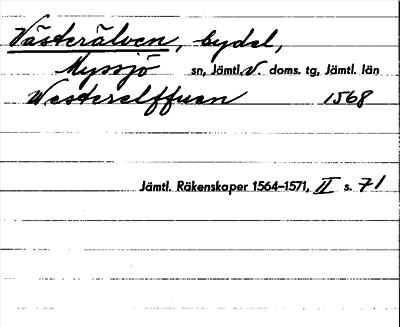 Västerälven, bydel,
Myssjö sn, Jämtl. v. doms. tg, Jämtl. län
Westerelffuen 1568
Jämtl. Räkenskaper 1564–1571, II s. 71